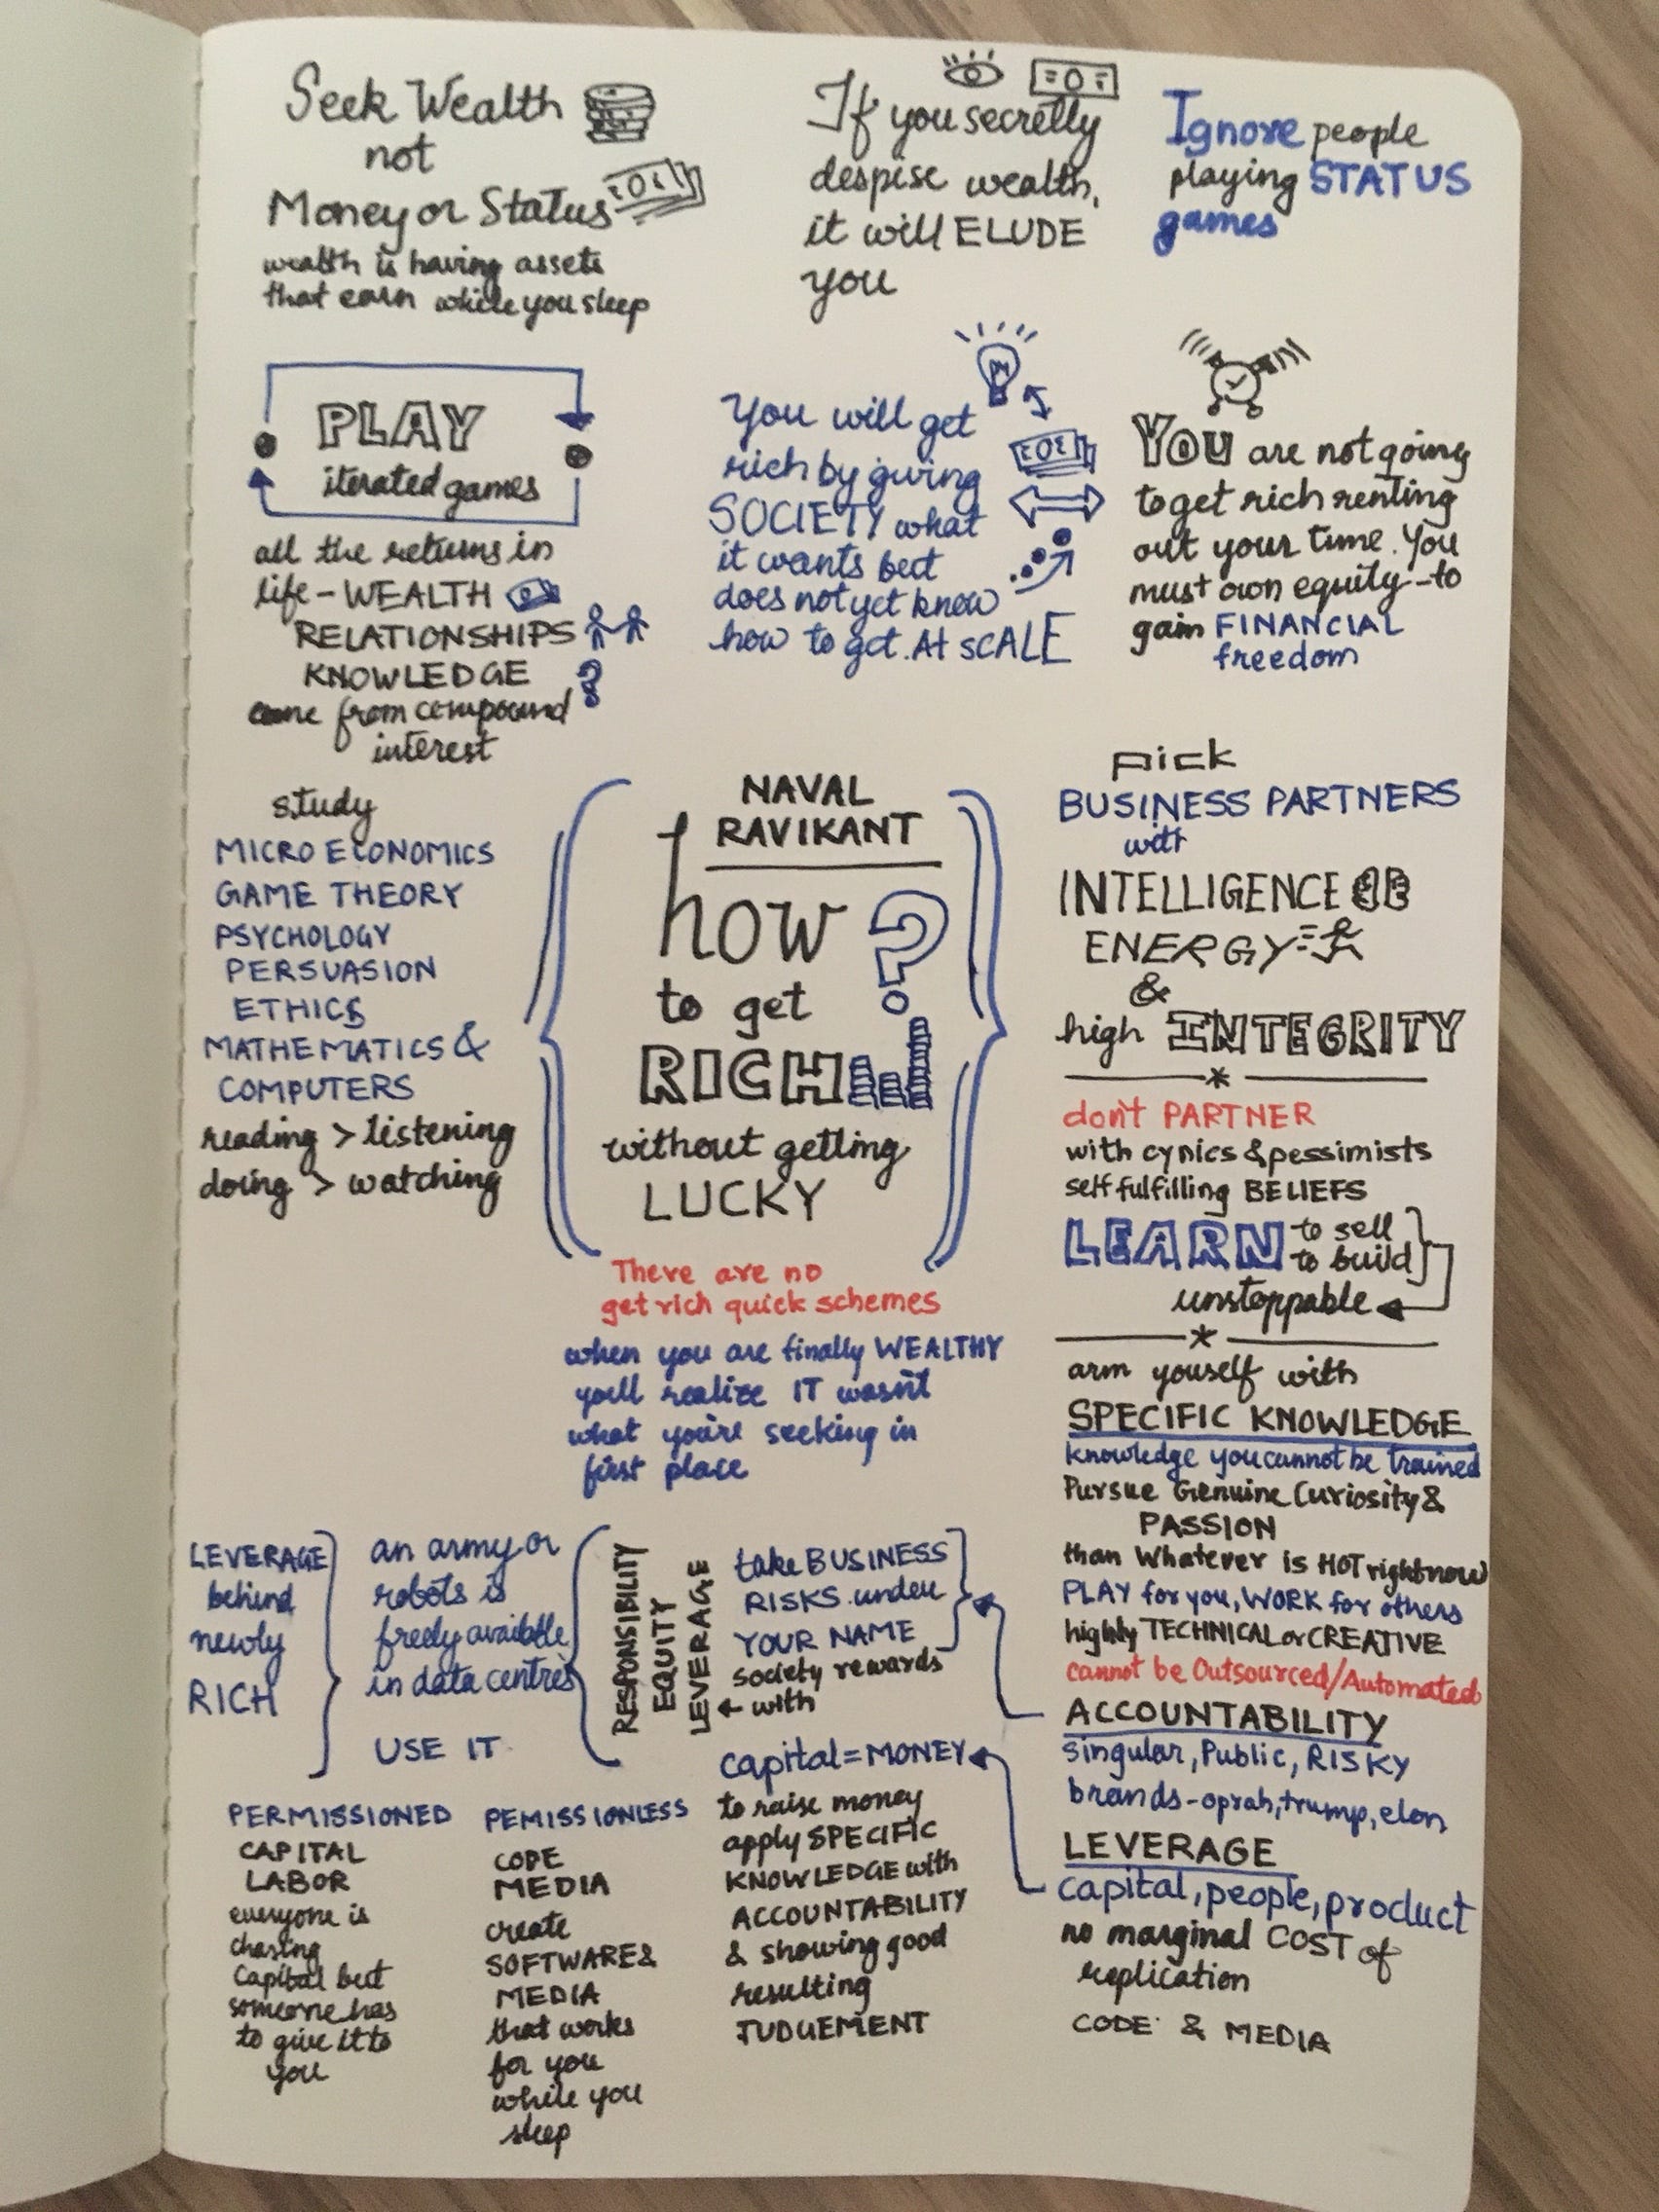 Seek Wealth
not
Money or Status
wealth is having assets
that earn while you sleep
If you secretly
despise wealth,
it will ELUDE
you
Ignore people
playing STATUS
games
PLAY
iterated games
all the returns in
life - WEALTH
RELATIONSHIPS
KNOWLEDGE
come from compound
interest
You will get
rich by giving
SOCIETY what
it wants but
does not yet know
how to get. At SCALE
YOU are not going
to get rich renting
out your time. You
must own equity - to
gain FINANCIAL
freedom
study
MICRO ECONOMICS
GAME THEORY
PSYCHOLOGY
PERSUASION
ETHICS
MATHEMATICS &
COMPUTERS
reading > listening
doing > watching
NAVAL
RAVIKANT
how ?
to get
RICH
without getting
LUCKY
There are no
get rich quick schemes
when you are finally WEALTHY
you'll realize IT wasn't
what you're seeking in
first place
pick
BUSINESS PARTNERS
with
INTELLIGENCE
ENERGY
&
high INTEGRITY
don't PARTNER
with cynics & pessimists
self fulfilling BELIEFS
LEARN to sell
to build
unstoppable
arm youself with
SPECIFIC KNOWLEDGE
knowledge you cannot be trained
Pursue Genuine Curiosity &
PASSION
than Whatever is HOT right now
PLAY for you, WORK for others
highly TECHNICAL or CREATIVE
cannot be Outsourced/Automated
ACCOUNTABILITY
singular, Public, RISKY
brands - oprah, trump, elon
LEVERAGE
capital, people, product
no marginal COST of
replication
CODE & MEDIA
LEVERAGE
behind
newly
RICH
an army or
robots is
freely availble
in data centres
USE IT
RESPONSIBILITY
EQUITY
LEVERAGE
take BUSINESS
RISKS under
YOUR NAME
society rewards
← with
capital = MONEY
to raise money
apply SPECIFIC
KNOWLEDGE with
ACCOUNTABILITY
& showing good
resulting
JUDGEMENT
PERMISSIONED
CAPITAL
LABOR
everyone is
chasing
Capital but
someone has
to give it to
you
PEMISSIONLESS
CODE
MEDIA
create
SOFTWARE &
MEDIA
that works
for you
while you
sleep